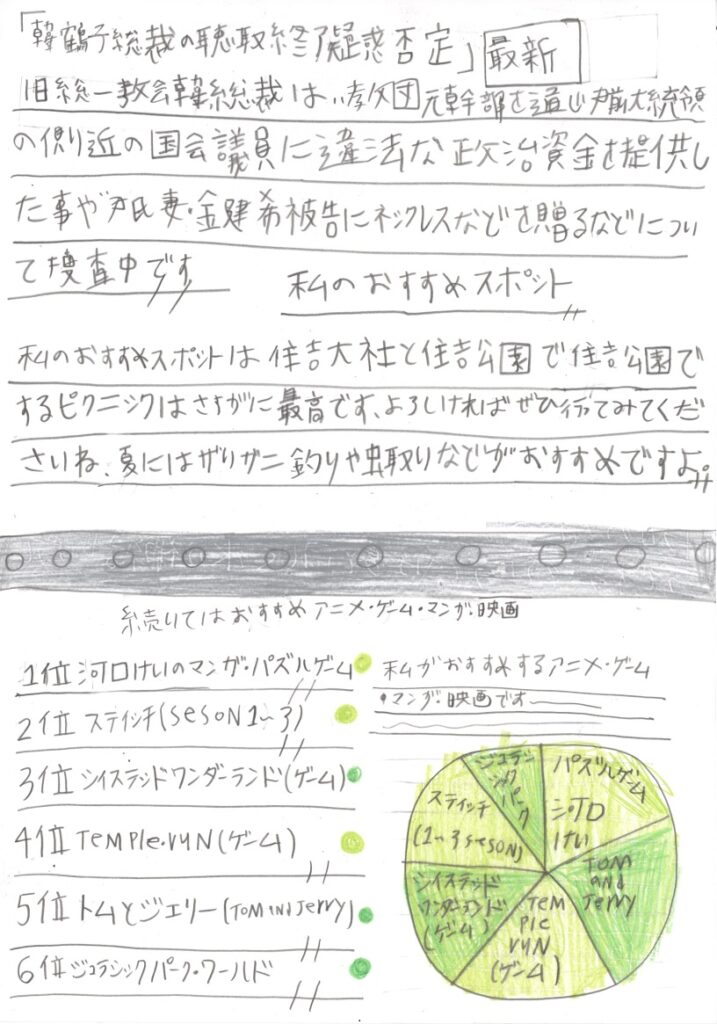 「韓鶴子総裁の聴取終了疑惑否定」 最新
旧総一教会韓総総裁は、教団元幹部を通じ尹前大統領
の側近の国会議員に違法な政治資金を提供し
た事や尹氏妻・金建希被告にネックレスなどを贈るなどについ
て捜査中です
私のおすすめスポット
私のおすすめスポットは住吉大社と住吉公園で住吉公園で
するピクニックはさすがに最高です、よろしければぜひ行てみてくだ
さいね、夏にはザリガニ釣りや虫取りなどがおすすめですよ。
続いてはおすすめアニメ・ゲーム・マンガ・映画
1位 河口けいのマンガ・パズルゲーム
2位 スティッチ(SeSON1~3)
3位 シイステッドワンダーランド(ゲーム)
4位 TemPle・ryN(ゲーム)
5位 トムとジェリー(TOM and Jerry)
6位 ジュラシックパーク・ワールド
私がおすすめするアニメ・ゲーム
・マンガ・映画です
ジュラシックパーク
パズルゲーム
河口けい
スティッチ
(1~3SeSON)
TOM
and
Jerry
シイステッド
ワンダーランド
(ゲーム)
TEM
Ple
ryN
(ゲーム)